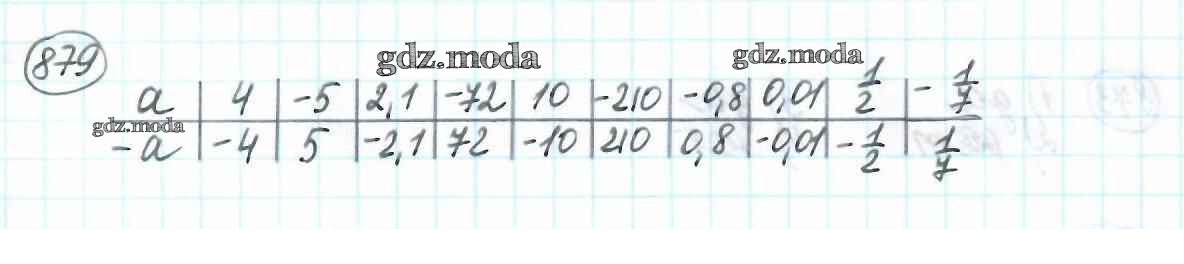 879
gdz.moda gdz.moda
a | 4 | -5 | 2,1 | -72 | 10 | -210 | -0,8 | 0,01 | 1/2 | - 1/7
gdz.moda
-a | -4 | 5 | -2,1 | 72 | -10 | 210 | 0,8 | -0,01 | - 1/2 | 1/7